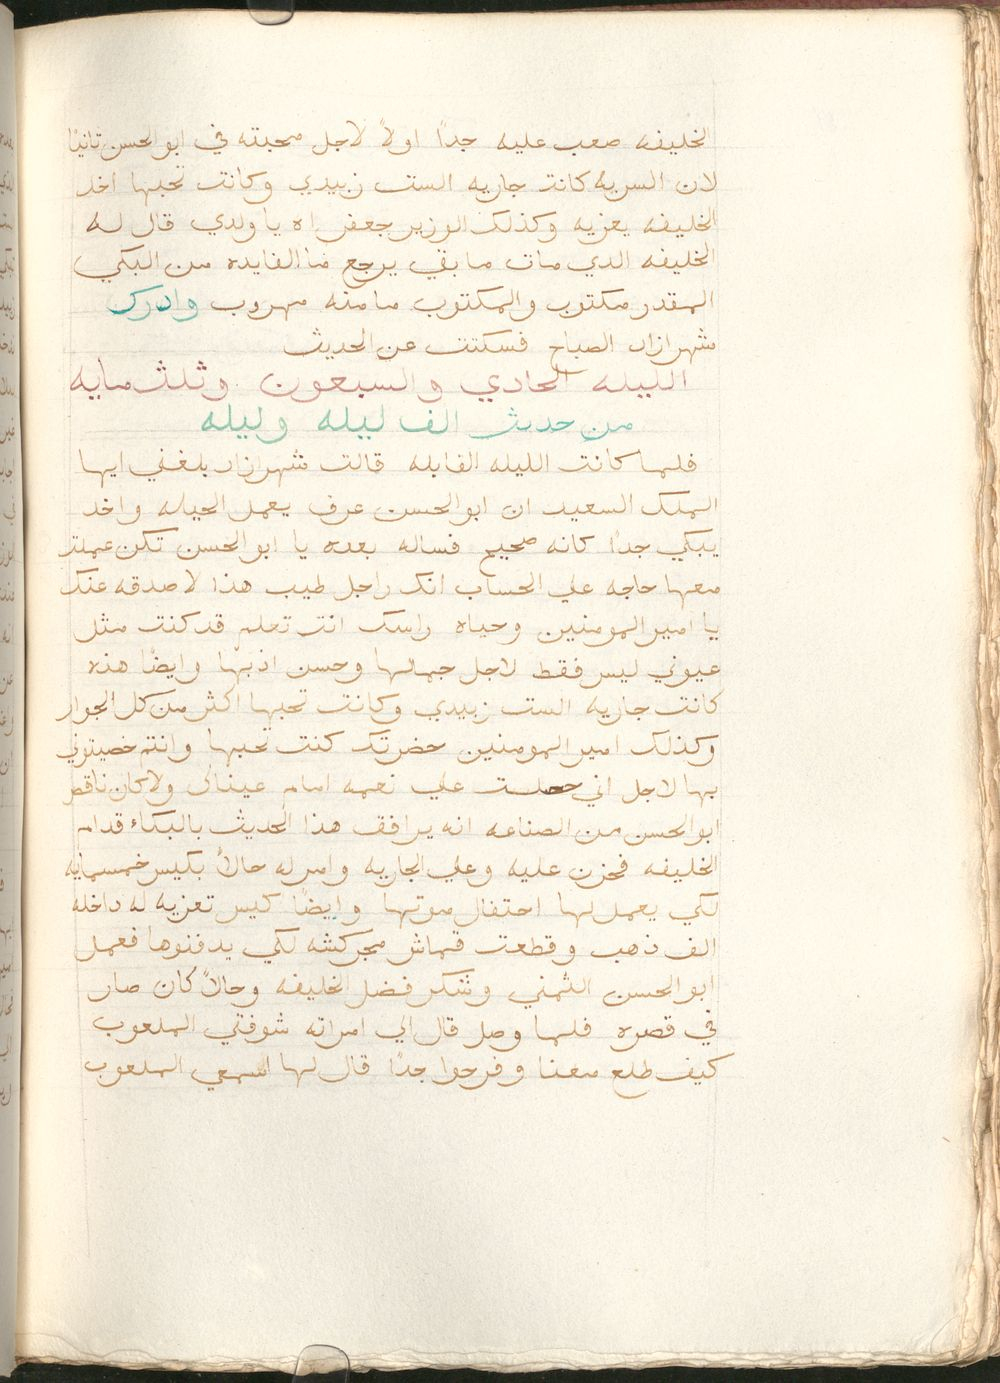 الخليفه صعب عليه جدًا اولاً لاجل محبته في ابو الحسن ثانيًا
لان السريه كانت جاريه الست زبيدي وكانت تحبها اخد
الخليفه يعزيه وكذلك الوزير جعفر اه يا ولدي قال له
الخليفه الدي مات ما بقي يرجع ما الفايده من البكي
المقدر مكتوب والمكتوب ما منه مهروب وادرك
شهرازاد الصباح فسكتت عن الحديث
الليله الحادي والسبعون وثلثمايه
من حديث الف ليله وليله
فلما كانت الليله القابله قالت شهرازاد بلغني ايها
الملك السعيد ان ابو الحسن عرف يعمل الحيله واخد
يبكي جدًا كانه صحيح فساله بعده يا ابو الحسن تكن عملت
معها حاجه علي الحساب انك راجل طيب هذا لا صدقه عنك
يا امير المومنين وحياه راسك انت تعلم قد كنت مثل
عيوني ليس فقط لاجل جمالها وحسن ادبها وايضًا هذه
كانت جاريه الست زبيدي وكانت تحبها اكثر من كل الجوار
وكذلك امير المومنين حضرتك كنت تحبها وانتم خصيتوني
بها لاجل اني حصلت علي نعمه امام عيناك ولا كان ناقص
ابو الحسن من الصناعه انه يرافق هذا الحديث بالبكاء قدام
الخليفه فحزن عليه وعلي الجاريه وامر له حالاً بكيس خمسمايه
لكي يعمل لها احتفال موتها وايضًا كيس تعزيه له داخله
الف ذهب وقطعت قماش مجركشه لكي يدفنوها فعمل
ابو الحسن التمني وشكر فضل الخليفه وحالاً كان صار
في قصره فلما وصل قال الي امراته شوفتي الملعوب
كيف طلع معنا وفرحوا جدًا قال لها اسمعي الملعوب